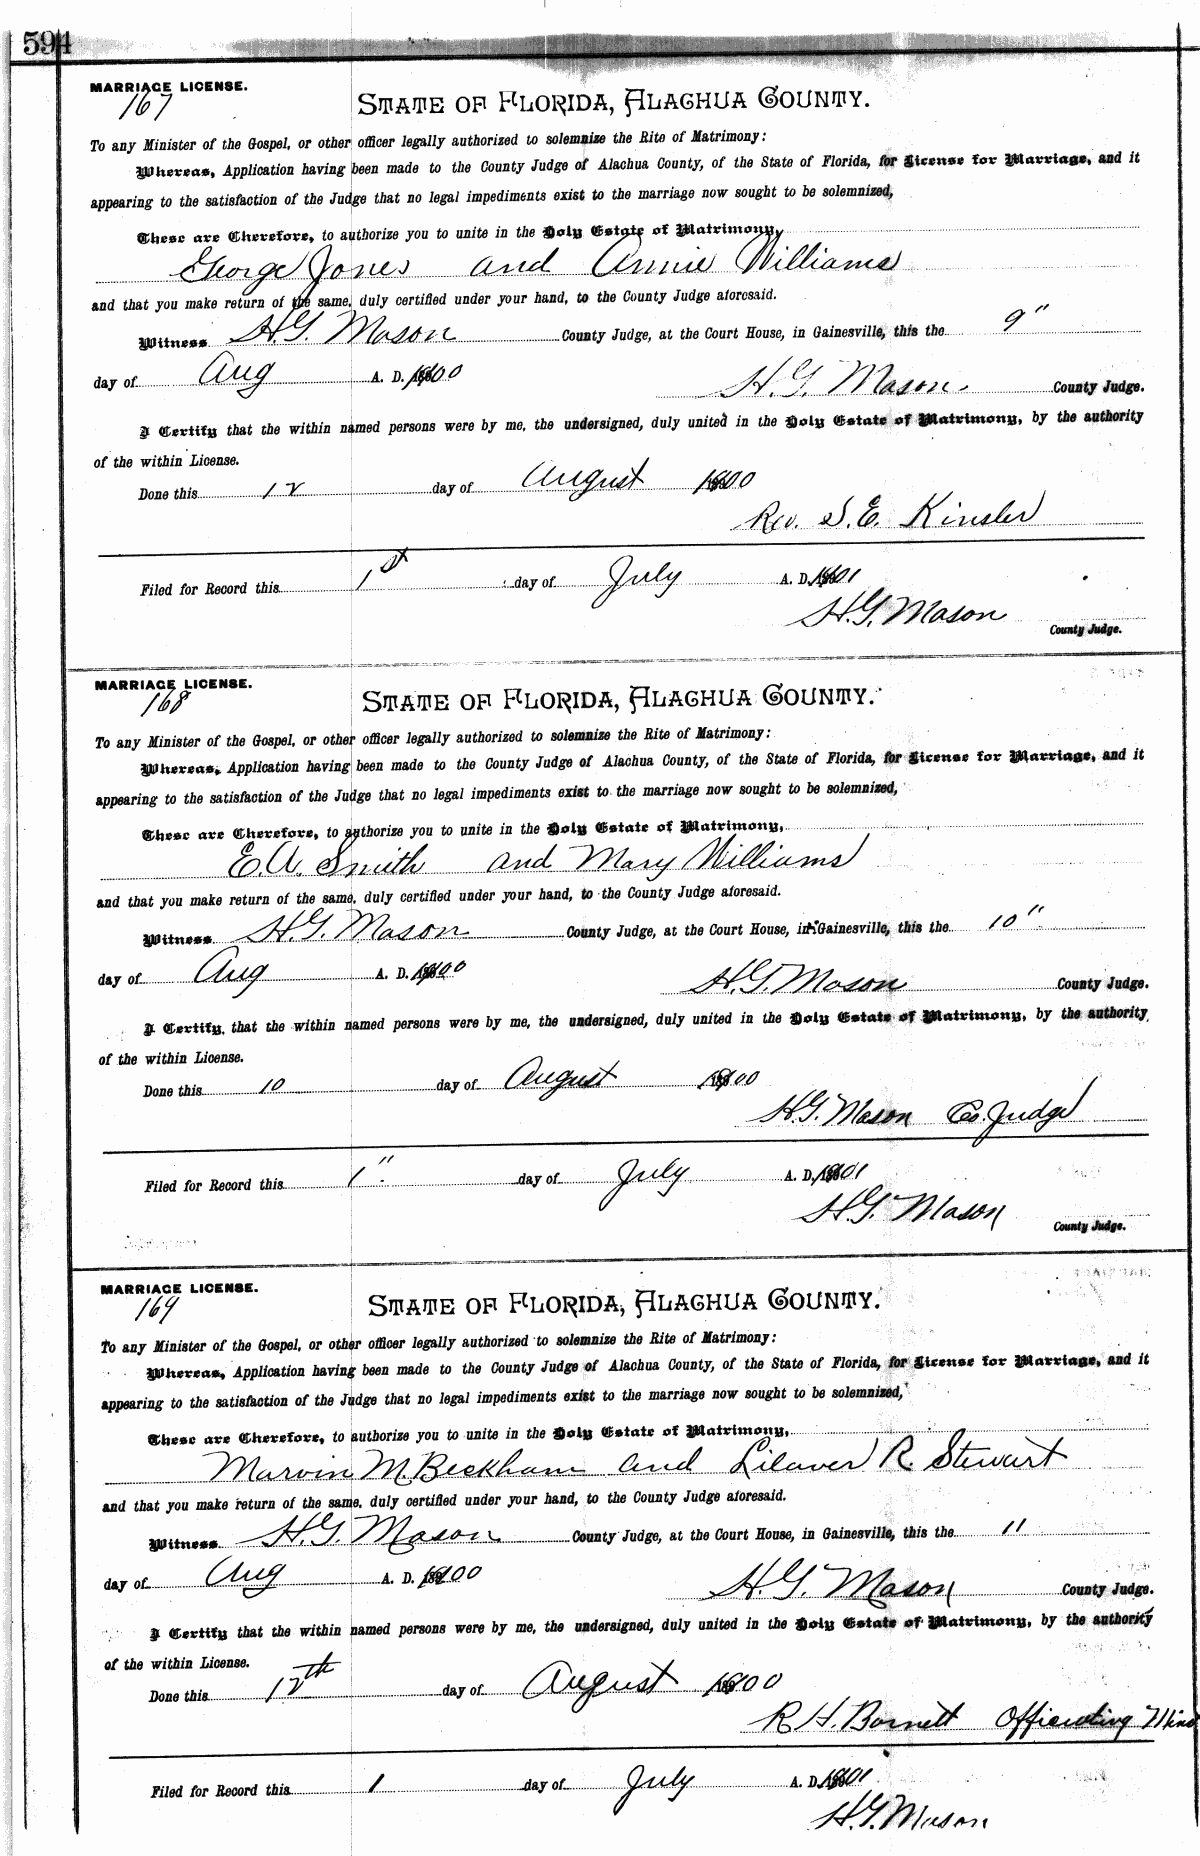 594
MARRIAGE LICENSE.
167
STATE OF FLORIDA, ALACHUA COUNTY.
To any Minister of the Gospel, or other officer legally authorized to solemnize the Rite of Matrimony:
Whereas, Application having been made to the County Judge of Alachua County, of the State of Florida, for License for Marriage, and it
appearing to the satisfaction of the Judge that no legal impediments exist to the marriage now sought to be solemnized,
These are Therefore, to authorize you to unite in the Holy Estate of Matrimony,
George Jones and Annie Williams
and that you make return of the same, duly certified under your hand, to the County Judge aforesaid.
Witness H.G. Mason County Judge, at the Court House, in Gainesville, this the 9"
day of Aug A. D. 1900 H.G. Mason. County Judge.
I Certify that the within named persons were by me, the undersigned, duly united in the Holy Estate of Matrimony, by the authority
of the within License.
Done this 12 day of August 1900
Rev. S.E. Kinsler
Filed for Record this 1st day of July A. D. 1901
H.G. Mason
County Judge.
MARRIAGE LICENSE.
168
STATE OF FLORIDA, ALACHUA COUNTY.
To any Minister of the Gospel, or other officer legally authorized to solemnize the Rite of Matrimony:
Whereas, Application having been made to the County Judge of Alachua County, of the State of Florida, for License for Marriage, and it
appearing to the satisfaction of the Judge that no legal impediments exist to the marriage now sought to be solemnized,
These are Therefore, to authorize you to unite in the Holy Estate of Matrimony,
E.A. Smith and Mary Williams
and that you make return of the same, duly certified under your hand, to the County Judge aforesaid.
Witness H.G. Mason County Judge, at the Court House, in Gainesville, this the 10"
day of Aug A. D. 1900 H.G. Mason County Judge.
I Certify, that the within named persons were by me, the undersigned, duly united in the Holy Estate of Matrimony, by the authority
of the within License.
Done this 10 day of August 1900
H.G. Mason Co. Judge
Filed for Record this 1" day of July A. D. 1901
H.G. Mason
County Judge.
MARRIAGE LICENSE.
169
STATE OF FLORIDA, ALACHUA COUNTY.
To any Minister of the Gospel, or other officer legally authorized to solemnize the Rite of Matrimony:
Whereas, Application having been made to the County Judge of Alachua County, of the State of Florida, for License for Marriage, and it
appearing to the satisfaction of the Judge that no legal impediments exist to the marriage now sought to be solemnized,
These are Therefore, to authorize you to unite in the Holy Estate of Matrimony,
Marvin M. Beckham and Lilaver R. Stewart
and that you make return of the same, duly certified under your hand, to the County Judge aforesaid.
Witness H.G. Mason County Judge, at the Court House, in Gainesville, this the 11
day of Aug A. D. 1900 H.G. Mason County Judge.
I Certify that the within named persons were by me, the undersigned, duly united in the Holy Estate of Matrimony, by the authority
of the within License.
Done this 12th day of August 1900
R H. Barnett Officiating Mins
Filed for Record this 1 day of July A. D. 1901
H.G. Mason